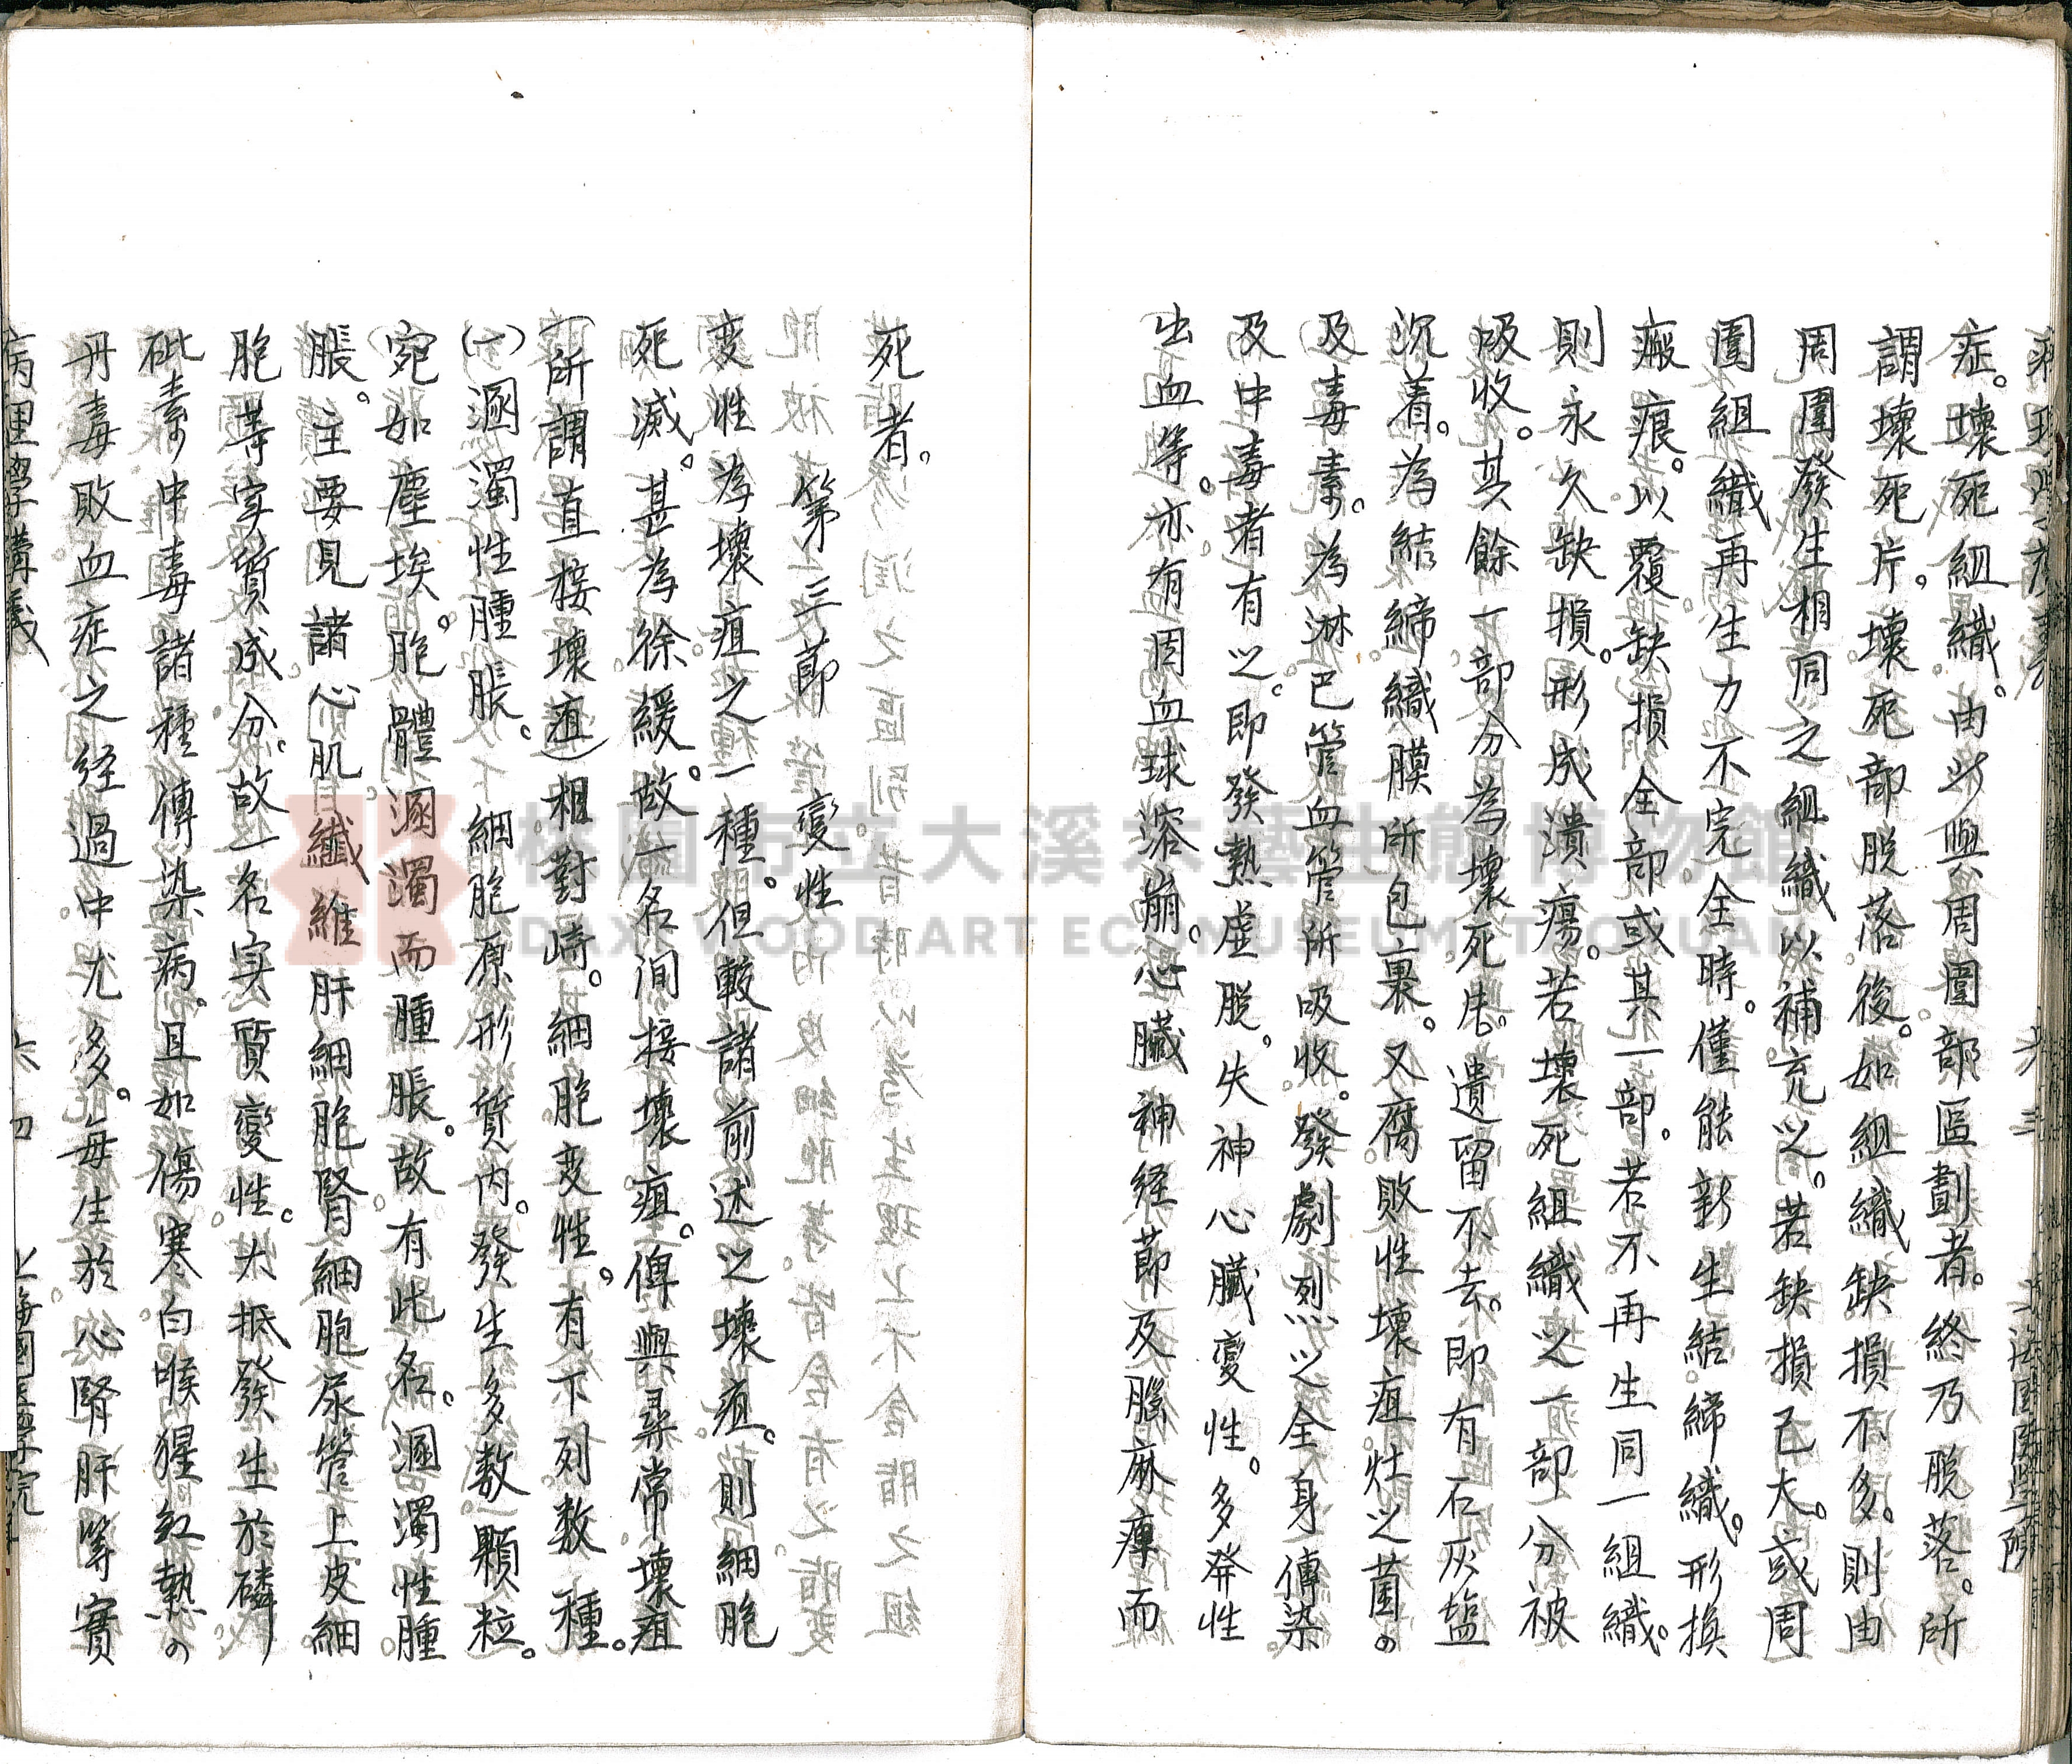 症。壞死組織。由此與周圍部區劃者。終乃脫落。所
謂壞死片。壞死部脫落後。如組織缺損不多。則由
周圍發生相同之組織以補充之。若缺損已大。或周
圍組織再生力不完全時。僅能新生結締織。形換
瘢痕。以覆缺損全部或其一部。若不再生同一組織。
則永久缺損。形成潰瘍。若壞死組織之一部分被
吸收。其餘一部分為壞死唐。遺留不去。即有石灰盐
沉着。為結締織膜所包裹。又腐敗性壞疽。灶之菌。
及毒素。為淋巴管血管所吸收。發劇烈之全身傳染
及中毒者有之。即發熱虛脫。失神心臟變性。多発性
出血等。亦有因血球溶崩。心臟神経節及腦麻痺而
死者。
第三節 變性
変性為壞疽之一種。但較諸前述之壞疽。則細胞
死滅。甚為徐緩。故一名間接壞疽。傳與尋常壞疽
(所謂直接壞疽)相對峙。細胞変性。有下列数種。
(一)溷濁性腫脹。細胞原形質内。發生多数顆粒。
宛如塵埃。胞體溷濁而腫脹。故有此名。溷濁性腫
脹。主要見諸心肌纖維肝細胞腎細胞尿管上皮細
胞等实質成分。故一名实質變性。大抵發生於磷
砒素中毒諸種傳染病。且如傷寒。白喉猩紅熱。
丹毒敗血症之経過中尤多。每生於心腎肝等實
病理學講義 六四 上海國醫學院
桃園市立大溪木藝生態博物館
DAXI WOOD ART ECOMUSEUM, TAOYUAN